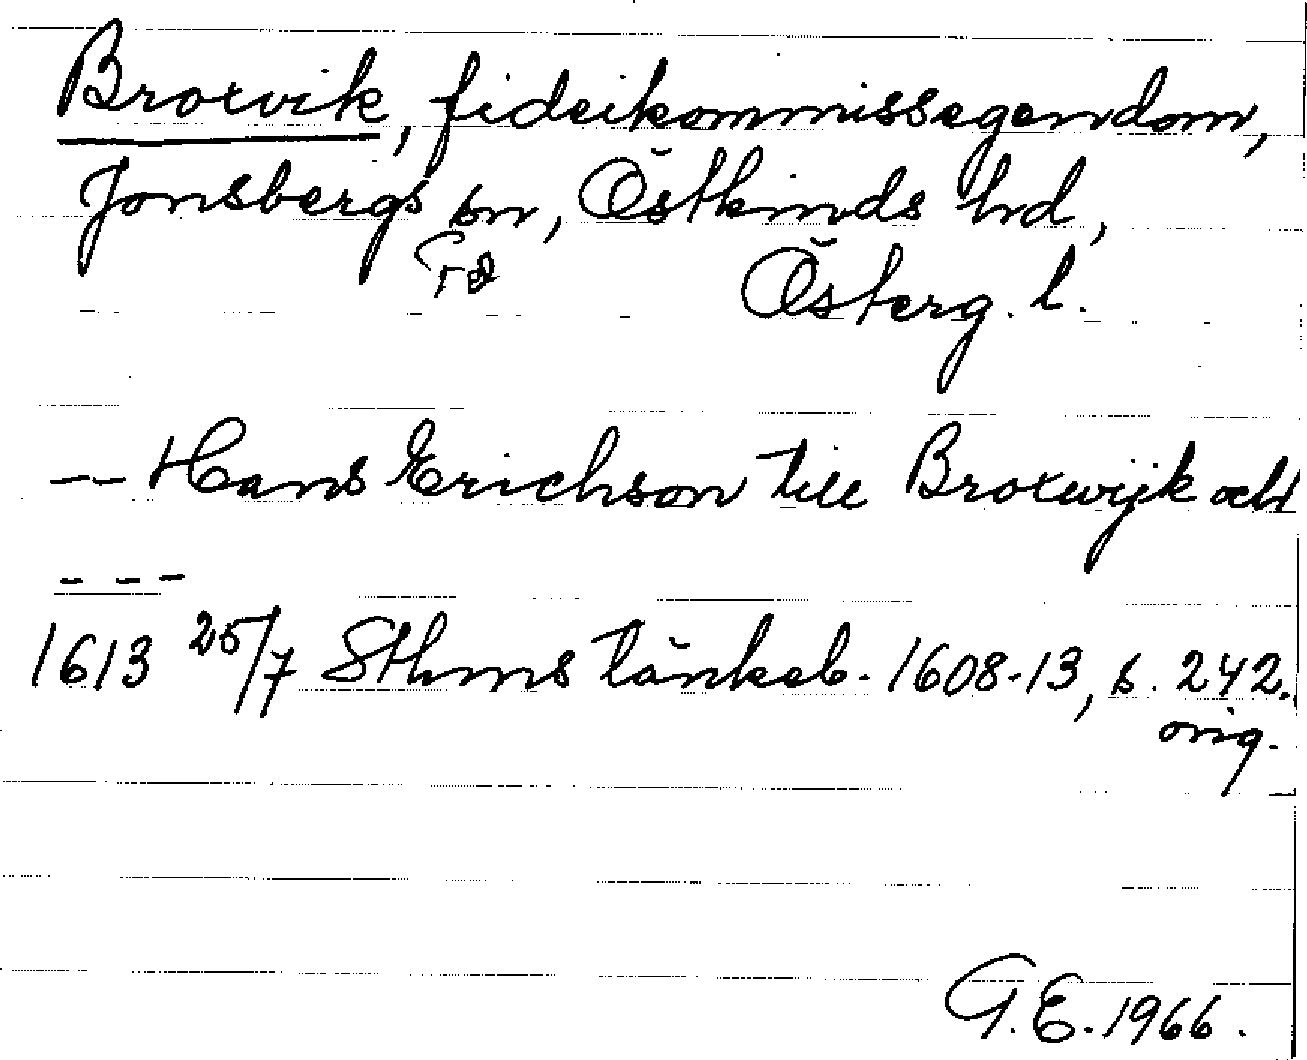 Broxvik, fideikommissegendom,
Jonsbergs sn, Östkinds hd,
Österg. l.
-- Hans Erichson till Broxwijk och
- - -
1613 25/7 Sthms tänkeb. 1608-13, s. 242.
orig.
G.E. 1966.